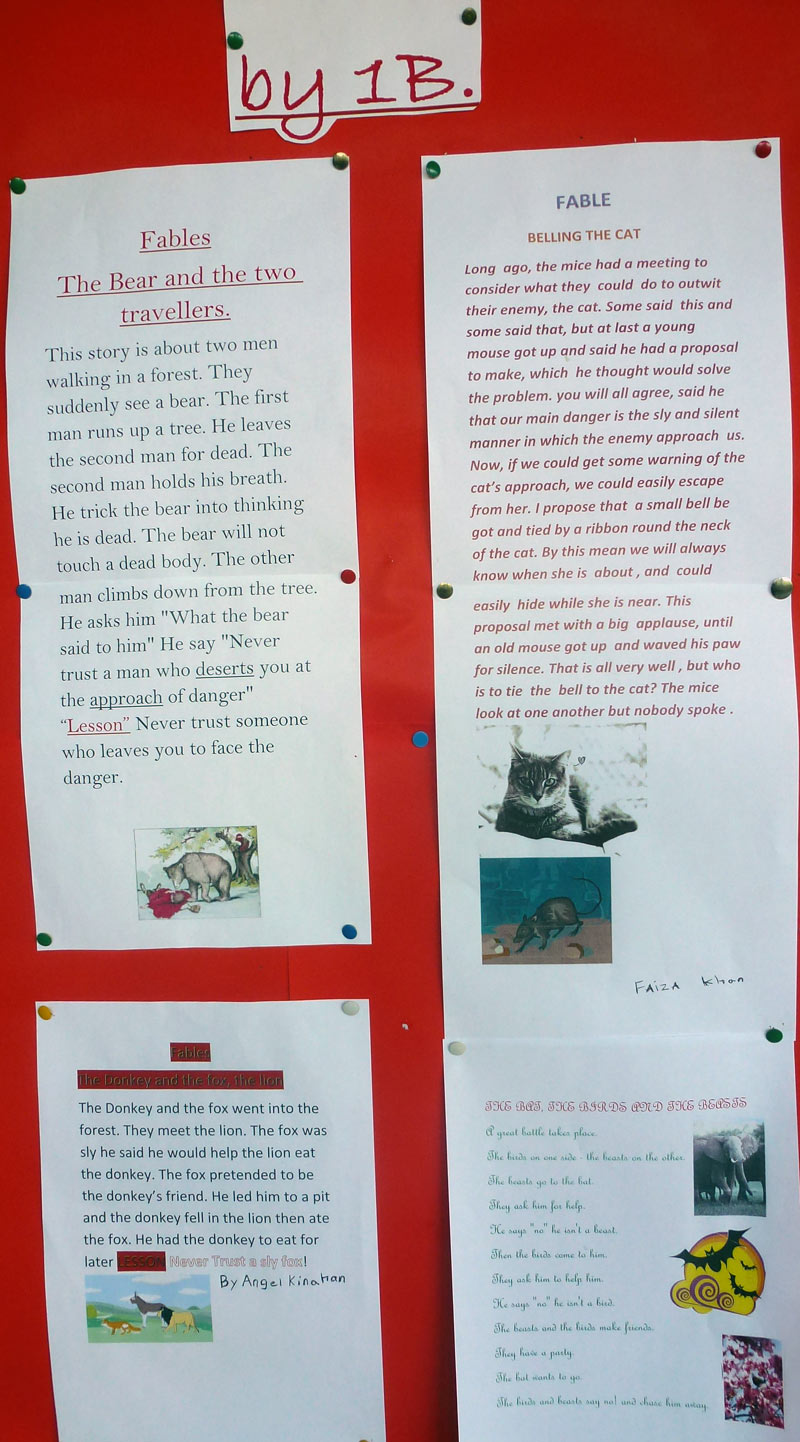 by 1B.
Fables
The Bear and the two
travellers.
This story is about two men
walking in a forest. They
suddenly see a bear. The first
man runs up a tree. He leaves
the second man for dead. The
second man holds his breath.
He trick the bear into thinking
he is dead. The bear will not
touch a dead body. The other
man climbs down from the tree.
He asks him "What the bear
said to him" He say "Never
trust a man who deserts you at
the approach of danger"
“Lesson” Never trust someone
who leaves you to face the
danger.
FABLE
BELLING THE CAT
Long ago, the mice had a meeting to
consider what they could do to outwit
their enemy, the cat. Some said this and
some said that, but at last a young
mouse got up and said he had a proposal
to make, which he thought would solve
the problem. you will all agree, said he
that our main danger is the sly and silent
manner in which the enemy approach us.
Now, if we could get some warning of the
cat's approach, we could easily escape
from her. I propose that a small bell be
got and tied by a ribbon round the neck
of the cat. By this mean we will always
know when she is about , and could
easily hide while she is near. This
proposal met with a big applause, until
an old mouse got up and waved his paw
for silence. That is all very well , but who
is to tie the bell to the cat? The mice
look at one another but nobody spoke .
FAIZA Khan
Fables
The Donkey and the fox, the lion
The Donkey and the fox went into the
forest. They meet the lion. The fox was
sly he said he would help the lion eat
the donkey. The fox pretended to be
the donkey's friend. He led him to a pit
and the donkey fell in the lion then ate
the fox. He had the donkey to eat for
later LESSON Never Trust a sly fox!
By Angel Kinahan
THE BAT, THE BIRDS AND THE BEASTS
A great battle takes place.
The birds on one side - the beasts on the other.
The beasts go to the bat.
They ask him for help.
He says "no" he isn't a beast.
Then the birds come to him.
They ask him to help him.
He says "no" he isn't a bird.
The beasts and the birds make friends.
They have a party.
The bat wants to go.
The birds and beasts say no! and chase him away.